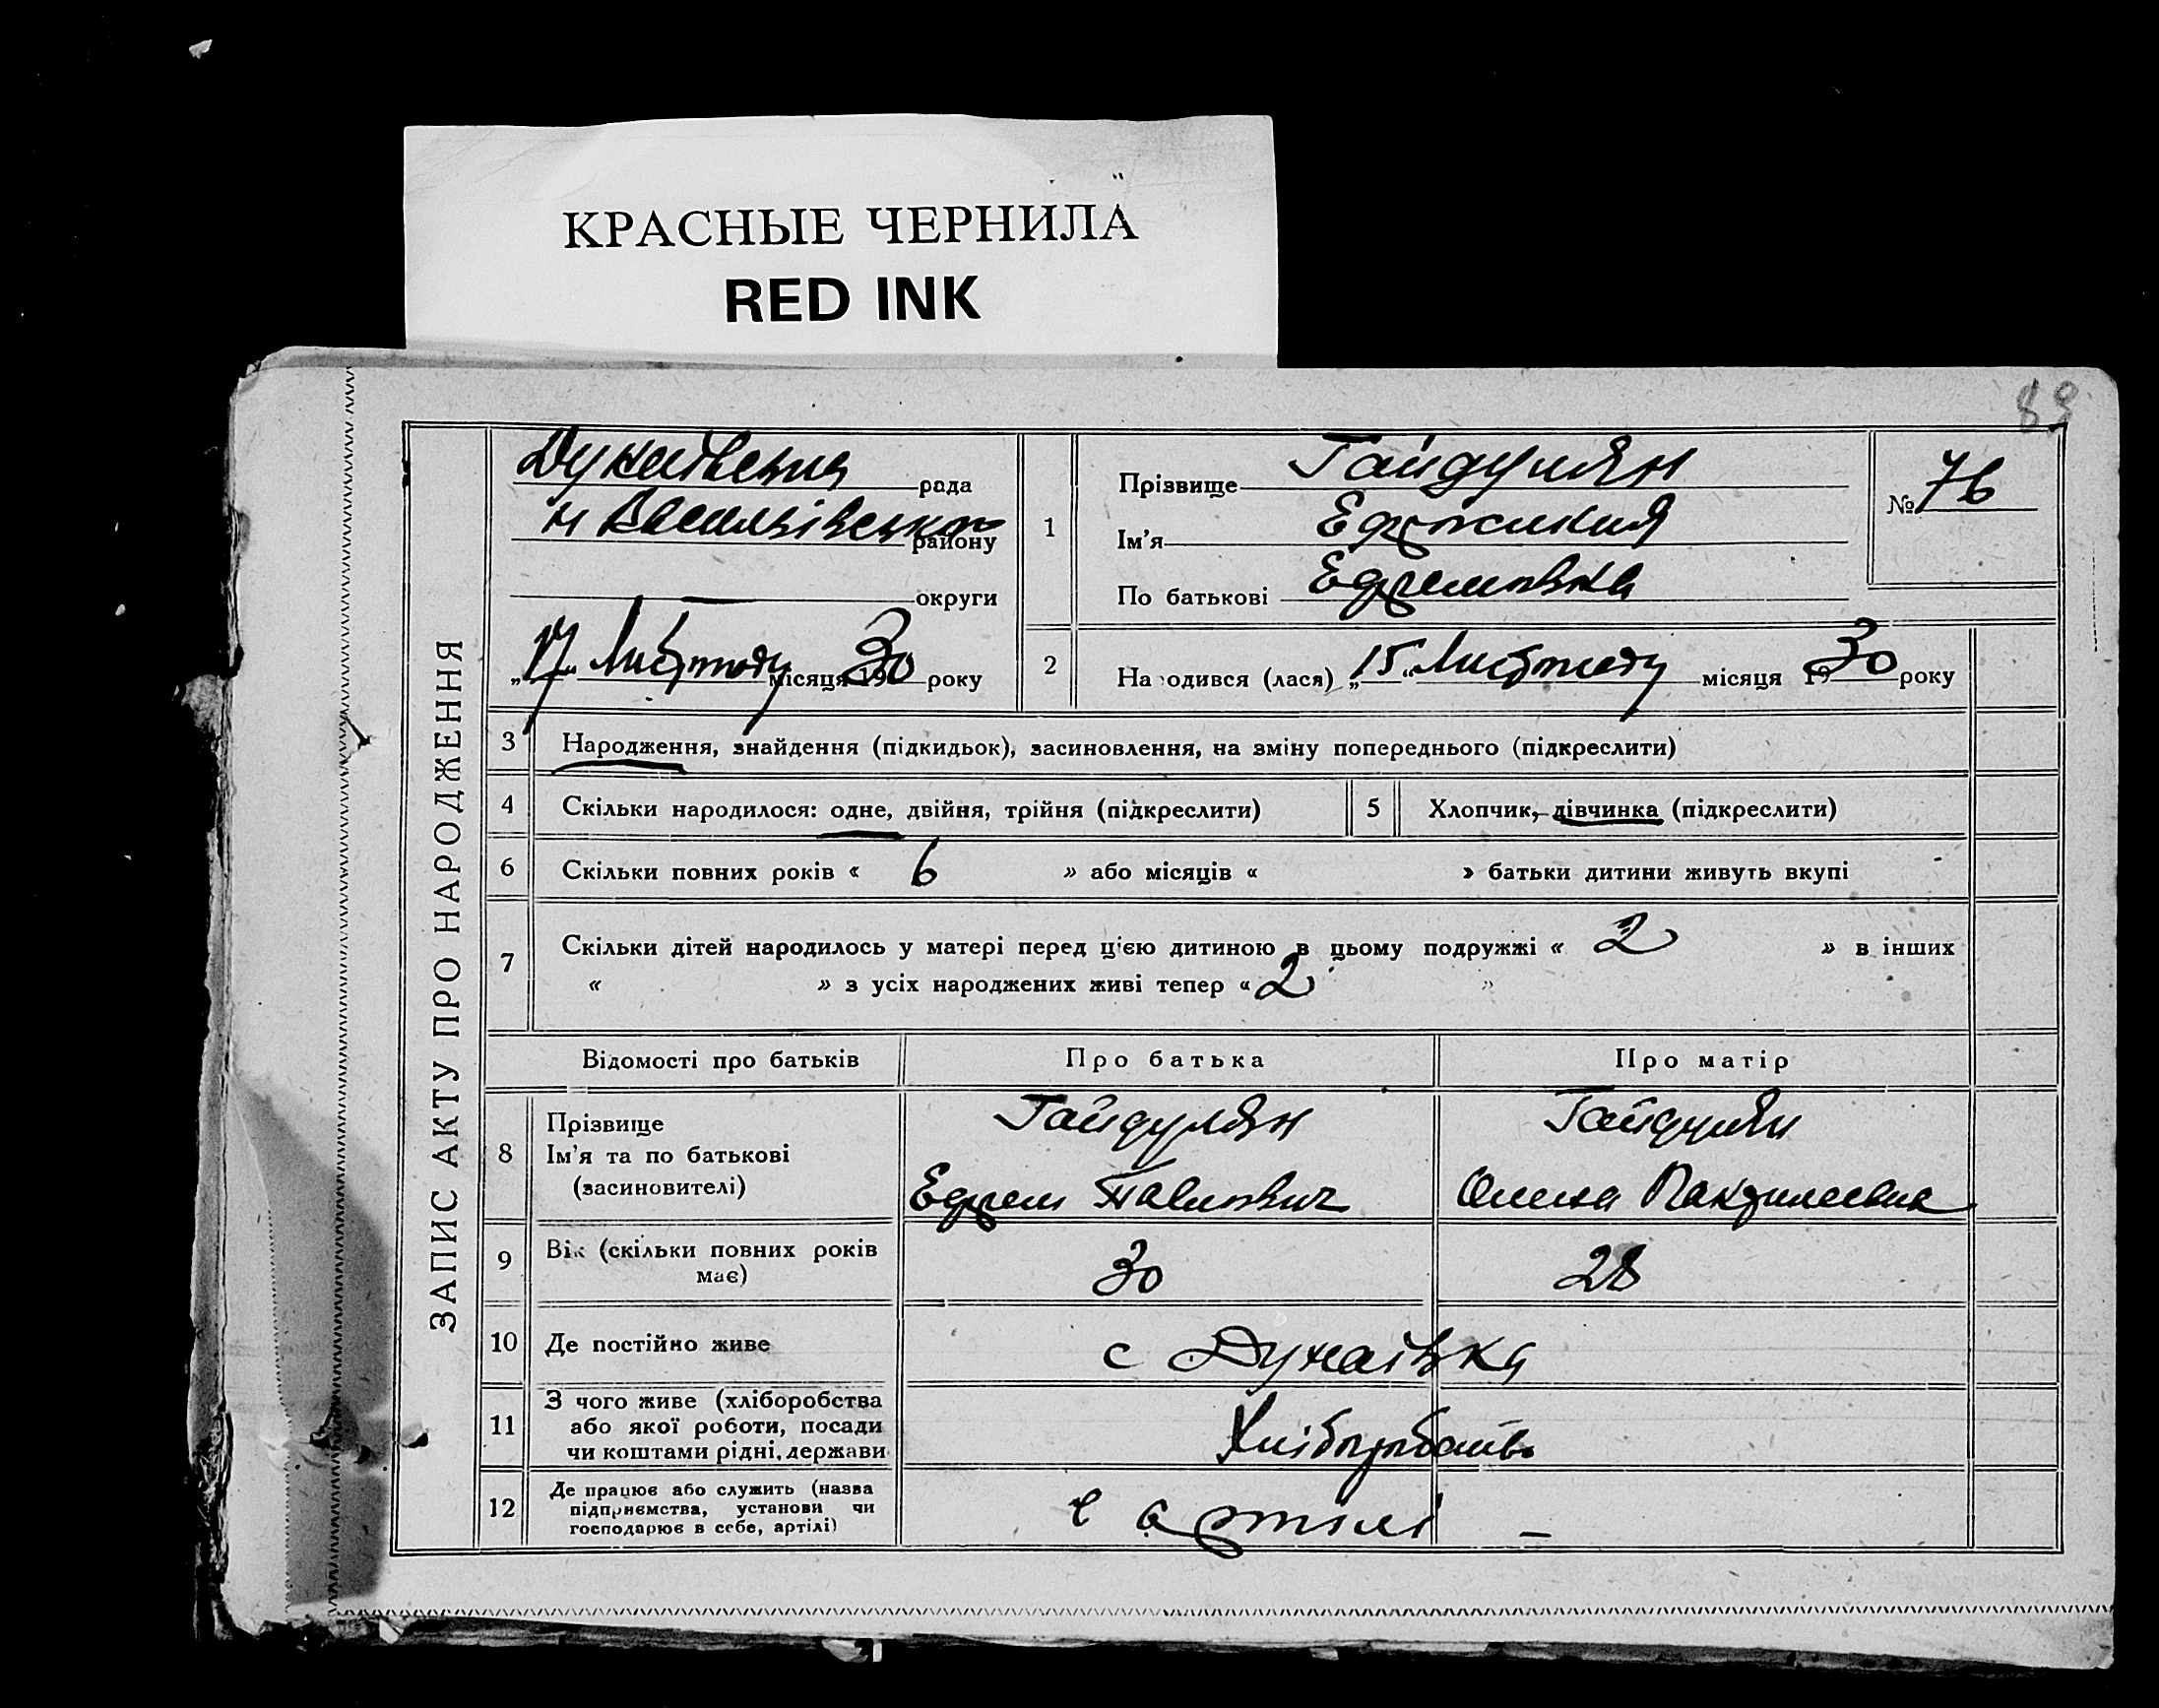 КРАСНЫЕ ЧЕРНИЛА
RED INK
89
ЗАПИС АКТУ ПРО НАРОДЖЕННЯ
рада
н Васильівського району
округи
„17“ Листопаду місяця 1930 року
1
Прізвище Гайдулян
Ім'я
По батькові Ефремовна
№ 76
2
Народився (лася) „15“ Листопаду місяця 1930 року
3 Народження, знайдення (підкидьок), засиновлення, на зміну попереднього (підкреслити)
4 Скільки народилося: одне, двійня, трійня (підкреслити)
5 Хлопчик, дівчинка (підкреслити)
6 Скільки повних років « 6 » або місяців « » батьки дитини живуть вкупі
7 Скільки дітей народилось у матері перед ц'єю дитиною в цьому подружжі « 2 » в інших
« » з усіх народжених живі тепер « 2 »
Відомості про батьків Про батька Про матір
8
Прізвище
Ім'я та по батькові
(засиновителі)
Гайдулян
Ефрем Павлович
Гайдулян
Олена
9
Вік (скільки повних років
має)
30
28
10 Де постійно живе
с Дунаівка
11
З чого живе (хліборобства
або якої роботи, посади
чи коштами рідні, держави
Хліборобство
12
Де працює або служить (назва
підприємства, установи чи
господарює в себе, артілі)
в артілі —